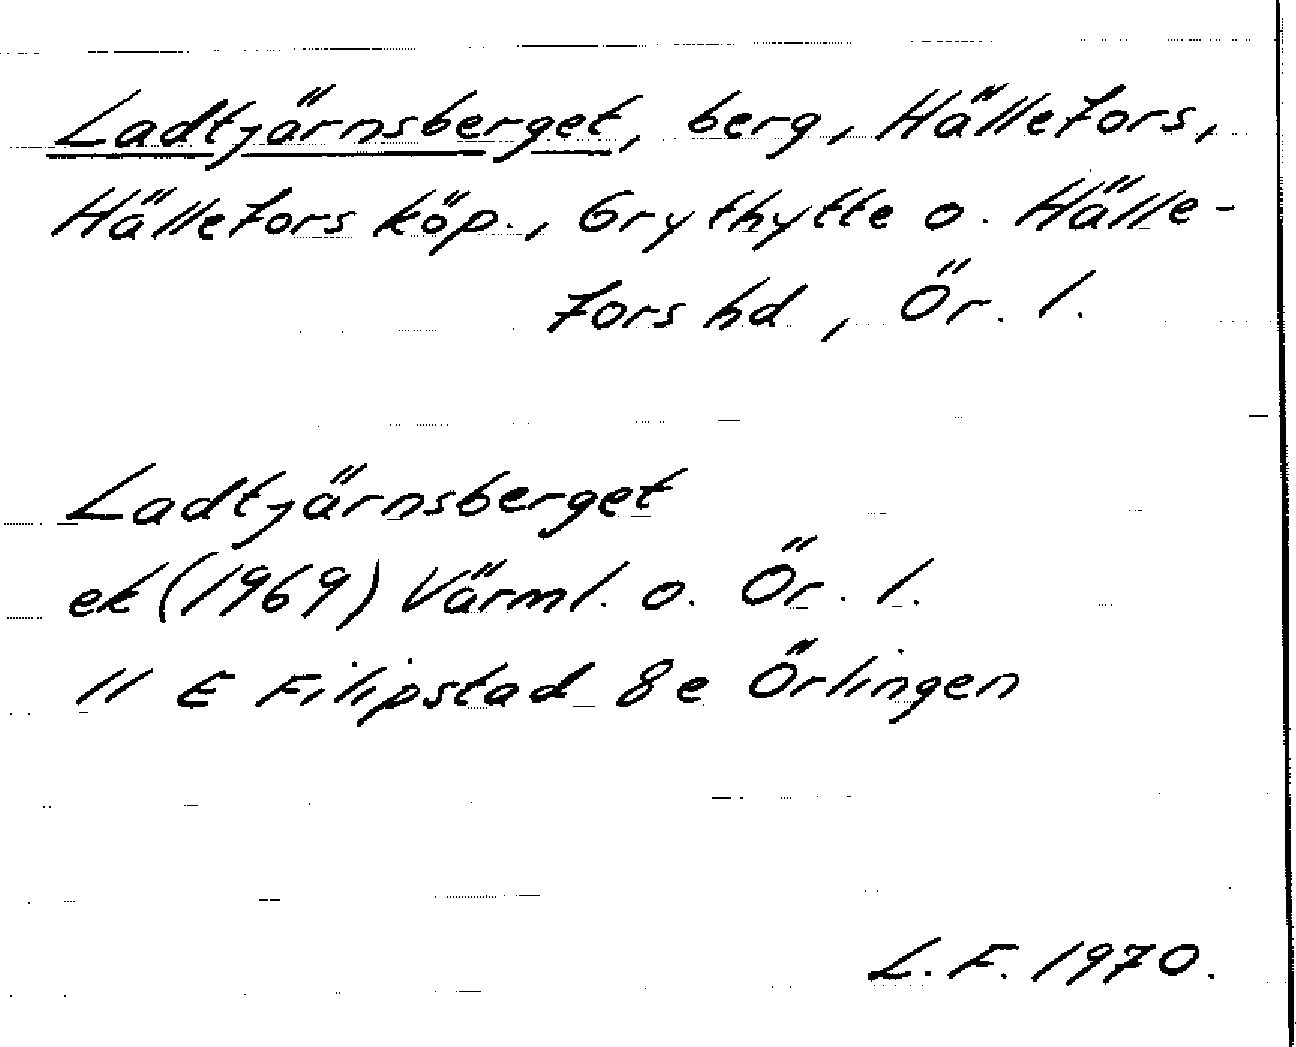 Ladtjärnsberget, berg, Hällefors,
Hällefors köp., Grythytte o. Hälle-
fors hd, Ör. l.
Ladtjärnsberget
ek (1969) Värml. o. Ör. l.
11 E Filipstad 8e Örlingen
L. F. 1970.